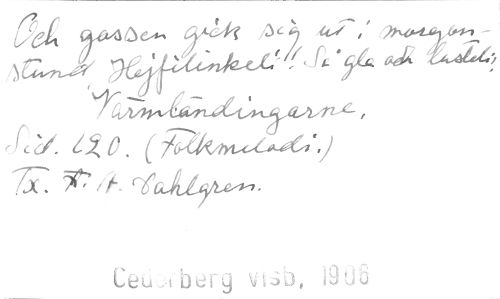 Och gossen gick sig ut i morgon-
stund, Hejfilinkeli! Så gla och lusteli,
Värmländingarne,
Sid. 120. (Folkmelodi.)
Tx. F. A. Dahlgren.
Cederberg visb, 1906